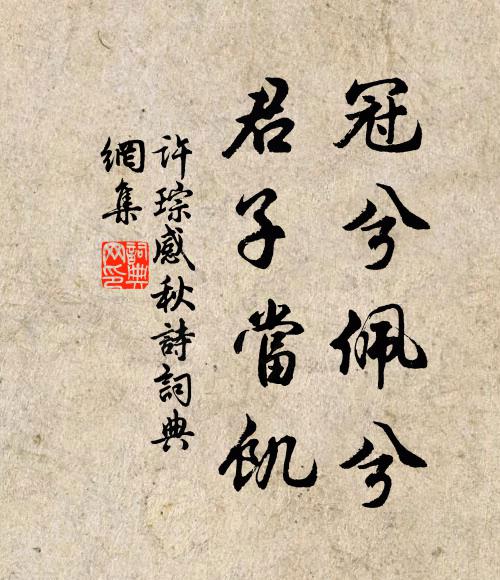 冠兮佩兮
君子當飢
許琮感秋詩詞典
網集
詞典
网印